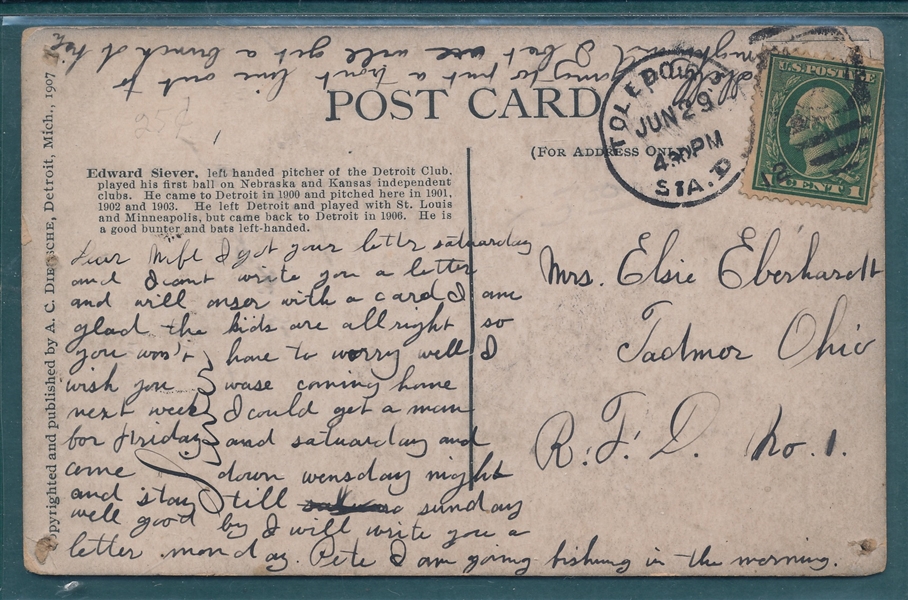 POST CARD
(FOR ADDRESS ONLY)
TOLEDO
JUN 29
4 PM
STA. D
U.S. POSTAGE
1 CENT 1
Edward Siever, left handed pitcher of the Detroit Club,
played his first ball on Nebraska and Kansas independent
clubs. He came to Detroit in 1900 and pitched here in 1901,
1902 and 1903. He left Detroit and played with St. Louis
and Minneapolis, but came back to Detroit in 1906. He is
a good bunter and bats left-handed.
Copyrighted and published by A. C. DIETSCHE, Detroit, Mich., 1907
Dear Wife I got your letter satuarday
and I cant write you a letter
and will anser with a card I am
glad the kids are all right so
you won't have to worry well I
wish you wase coming home
next week I could get a man
for friday and satuarday and
come down wensday night
and stay till sunday
well good by I will write you a
letter monday. Pete I am going fishung in the morning.
going to put a trout line out to
night and I bet we will get a bunch of
Mrs. Elsie Eberhardt
Tadmor Ohio
R.F.D. No. 1.